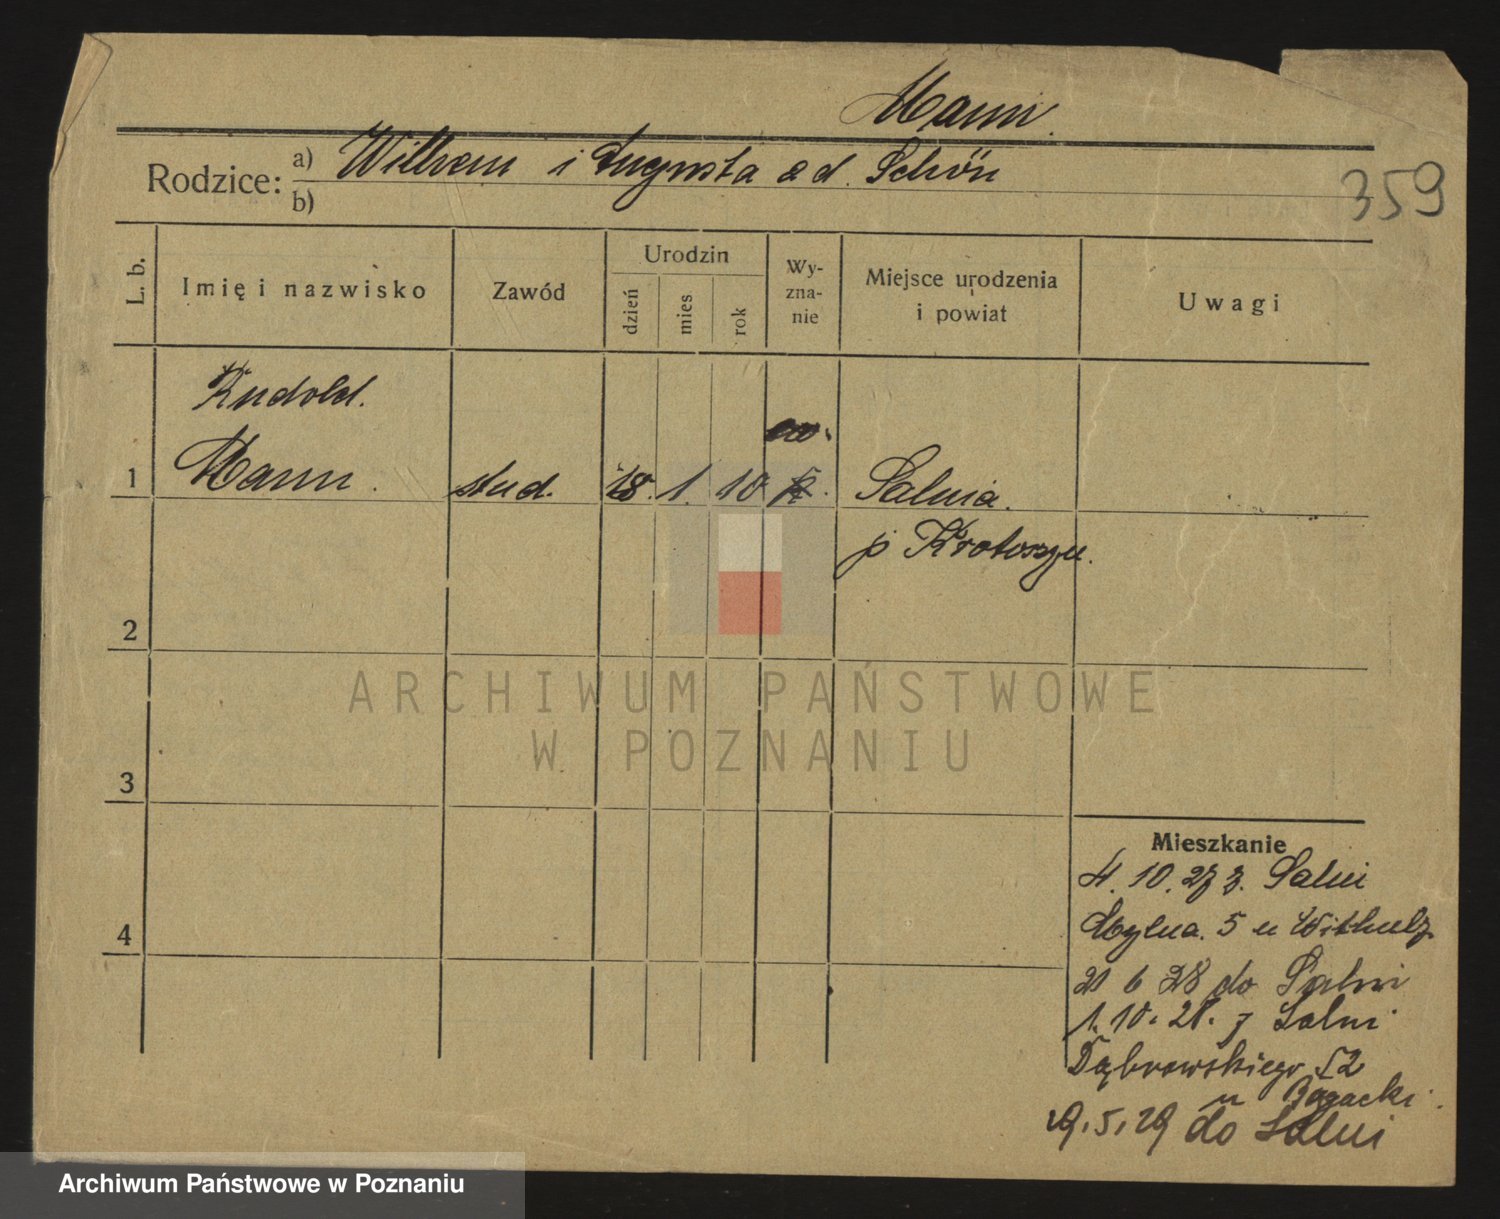 Mann.
Rodzice: a) Wilhem i Augusta z d. Schön
b)
359
L. b.
Imię i nazwisko
Zawód
Urodzin
dzień
mies
rok
Wy-
zna-
nie
Miejsce urodzenia
i powiat
Uwagi
Rudold.
ew.
1 Mann. stud. 18. 1. 10 Salnia.
p Krotoszyn.
2
ARCHIWUM PAŃSTWOWE
W POZNANIU
3
4
Mieszkanie
4. 10. 27 z. Salni
5 u
21 6 28 do Salni
1. 10. 28. z Salni
Dąbrowskiego 52
u Bogacki.
29. 5. 29 do Salni
Archiwum Państwowe w Poznaniu